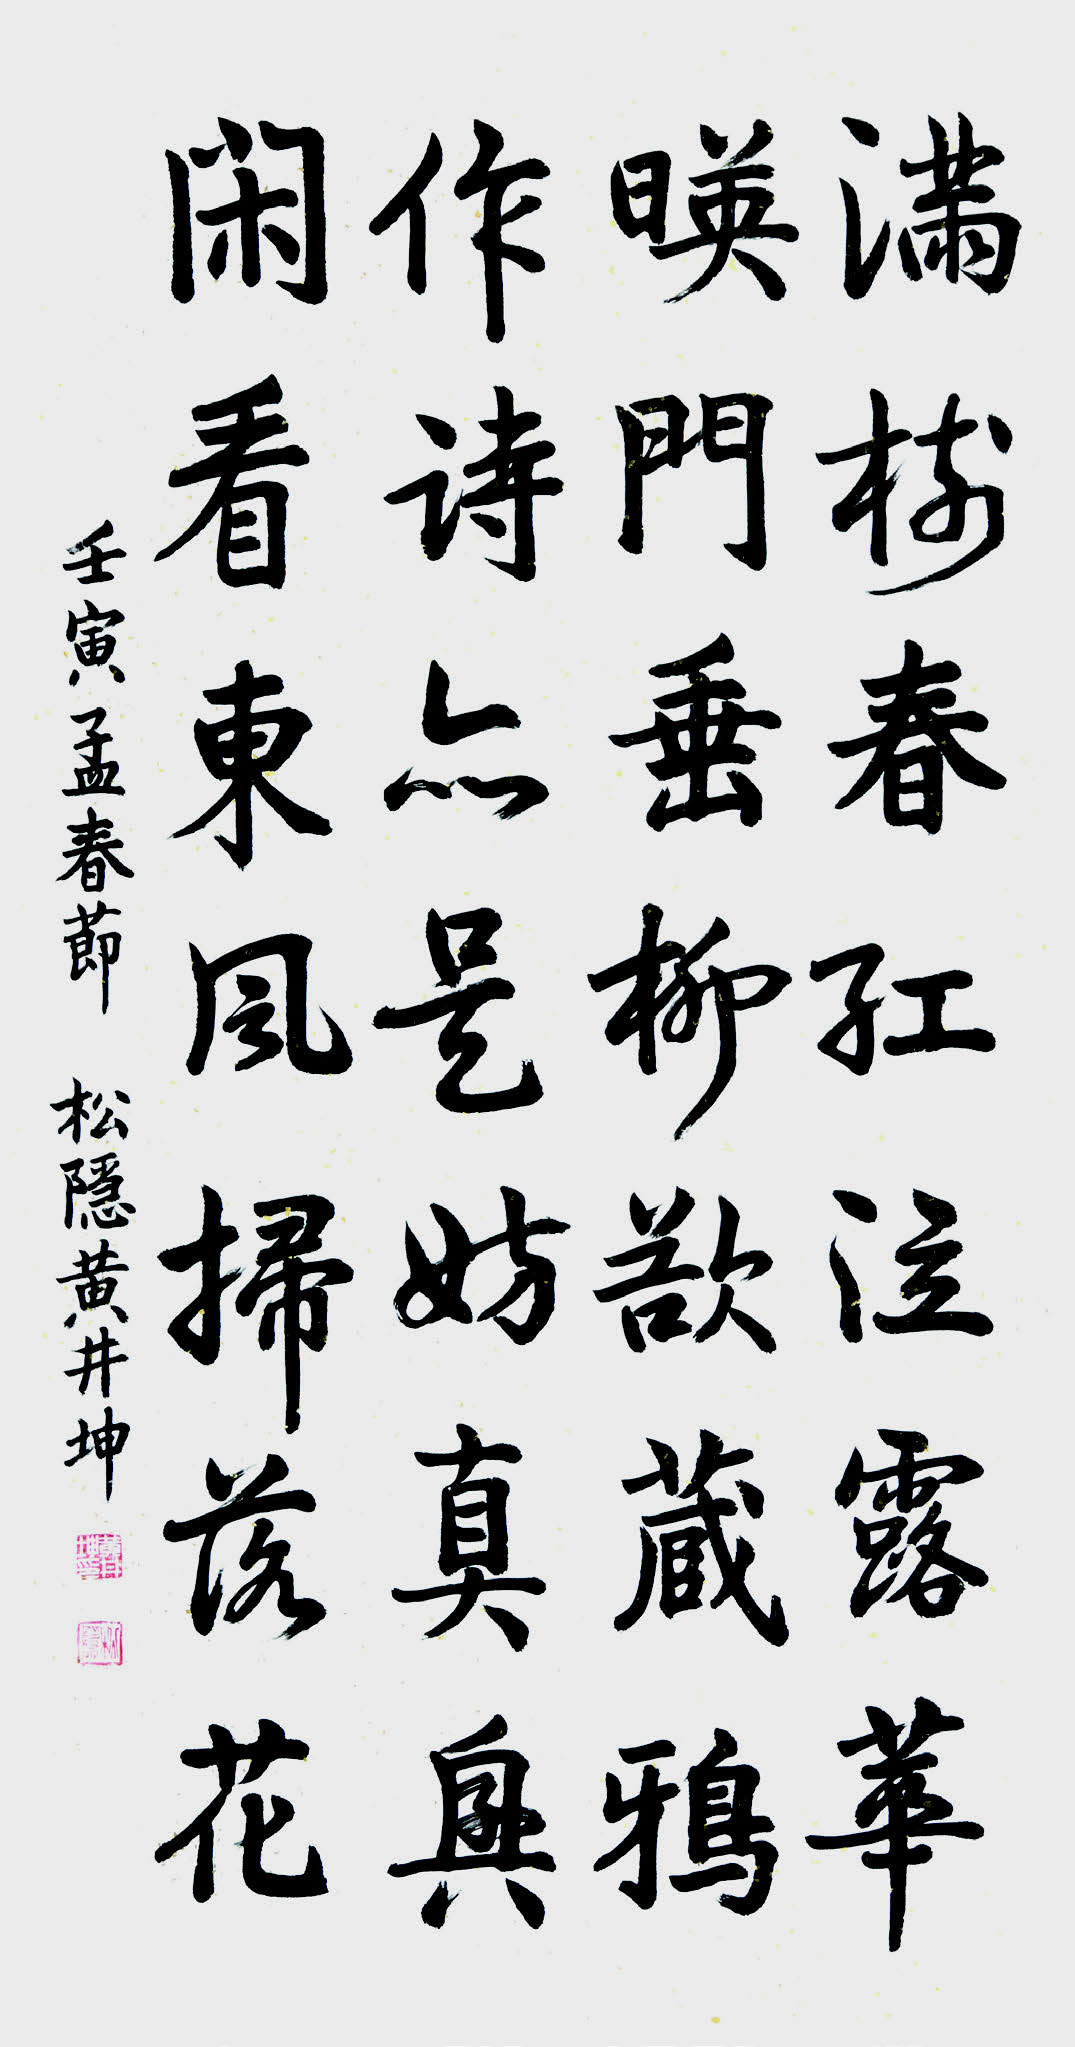 満樹春紅泣露華
暎門垂柳欲蔵鴉
作詩亦是妨真興
閑看東風掃落花
壬寅孟春節 松隱黄井坤